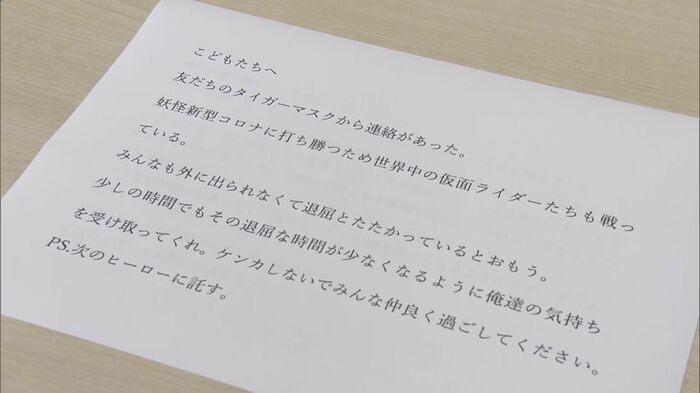 こどもたちへ
友だちのタイガーマスクから連絡があった。
妖怪新型コロナに打ち勝つため世界中の仮面ライダーたちも戦っ
ている。
みんなも外に出られなくて退屈とたたかっているとおもう。
少しの時間でもその退屈な時間が少なくなるように俺達の気持ち
を受け取ってくれ。ケンカしないでみんな仲良く過ごしてください。
PS.次のヒーローに託す。